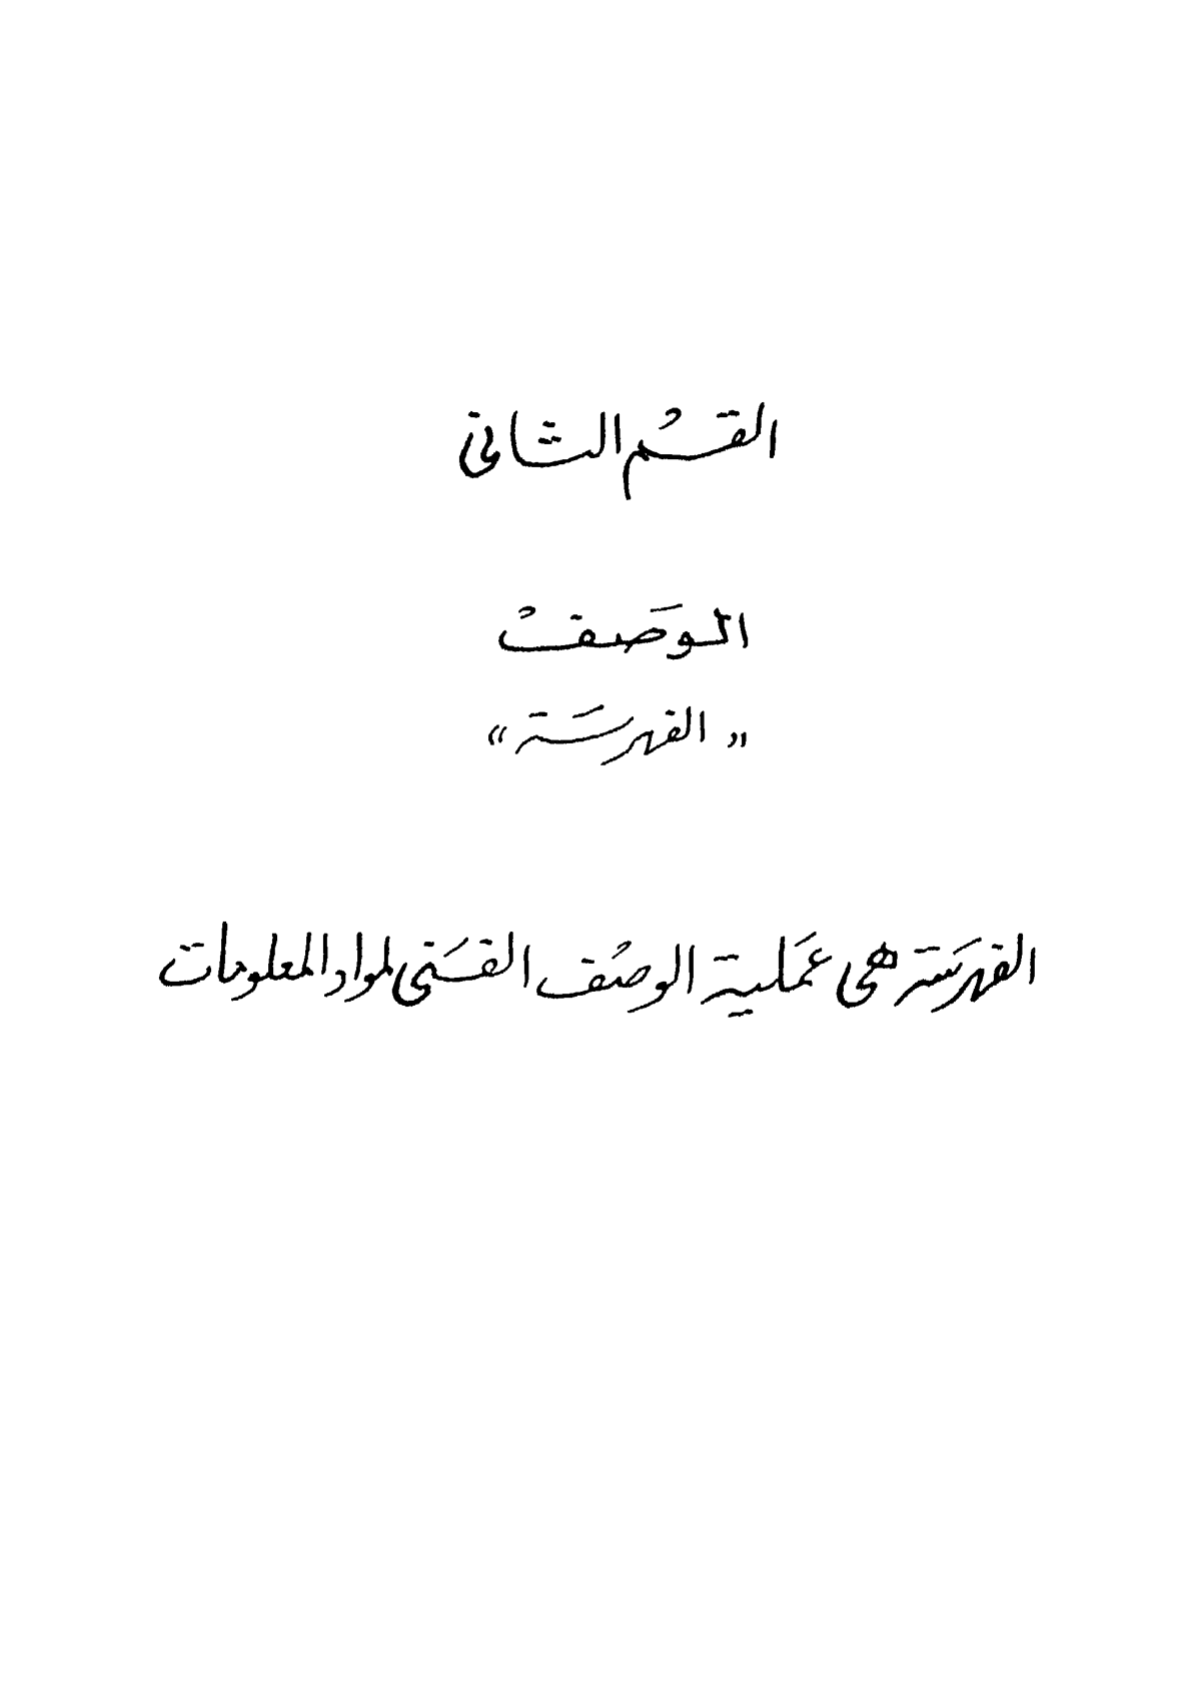 القسْم الثانى
الوَصفْ
« الفهرسَة »
الفهرسَة هى عمَلية الوصْف الفَنى لمواد المعلومات